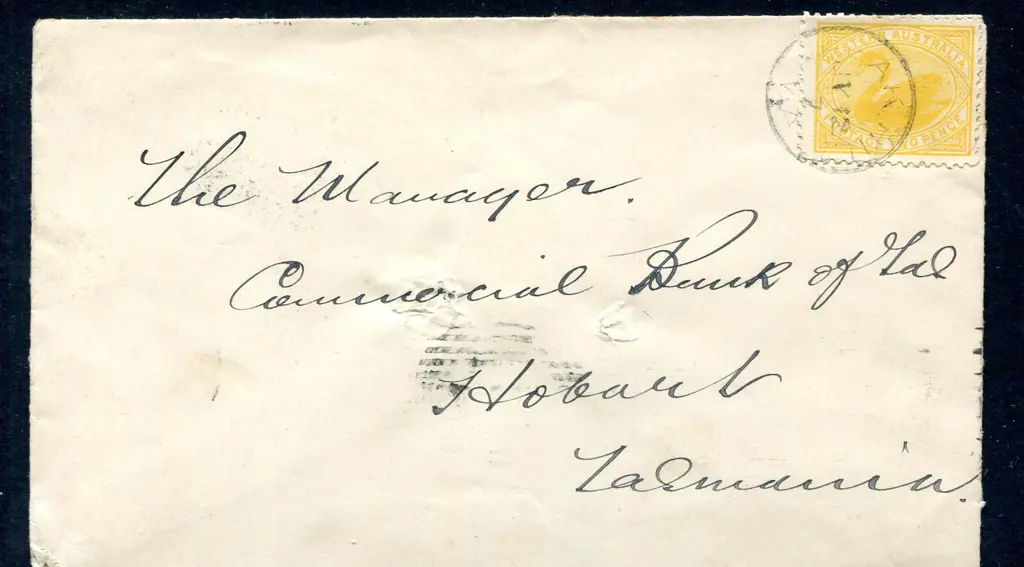 WESTERN AUSTRALIA
POSTAGE TWO PENCE
The Manager.
Commercial Bank of Tas
Hobart
Tasmania.